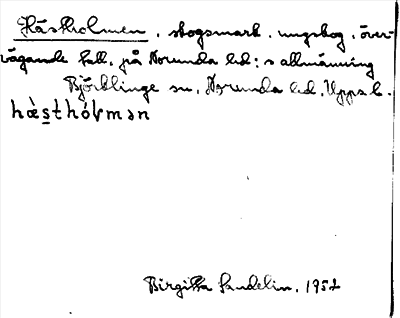 Hästholmen, skogsmark, ungskog, över-
vägande tall, på Norunda hd:s allmänning
Björklinge sn, Norunda hd, Uppsl.
hὰsthólmən
Birgitta Sandelin, 1952